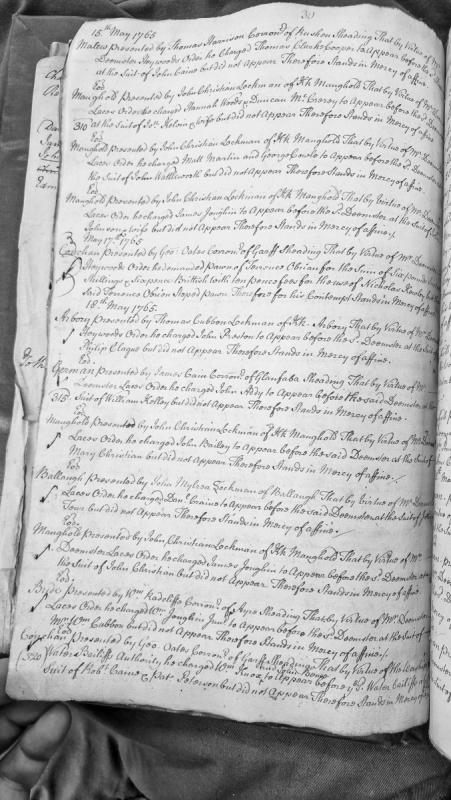 30
15th May 1765
Malew presented by Thomas Harrison Corronr of Rushen Sheading That by Virtue of Mr
Deemster Heywoods Order he Charged Thomas Clarke Cooper to Appear before the sd Deemster
at the Suit of John Caine but did not Appear Therefore Stands in Mercy of affine.
Eod
Maughold presented by John Christian Lockman of Kk Maughold That by Virtue of Mr Deemster
Laces Order he charged Hannah Woods & Duncan to Appear before the sd Deemster
310 at the Suit of Jon & wife but did not Appear Therefore Stands in Mercy of affine
Eod
Maughold presented by John Christian Lockman of Kk Maughold That by Virtue of Mr Deemster
Laces Order he charged Matt Martin and George to Appear before the sd Deemster at
the Suit of John Wattleworth but did not Appear Therefore Stands in Mercy of affine.
Eod
Maughold presented by John Christian Lockman of Kk Maughold That by Virtue of Mr Deemster
Laces Order he charged James Joughin to Appear before the sd Deemster at the Suit of
Johnson & wife but did not Appear Therefore Stands in Mercy of affine.
May 17th 1765
Conchan presented by Geo: Oates Corronr of Garff Sheading That by Virtue of Mr Deemster
Heywoods Order he demanded pawn of Terence Obrian for the Sum of Six pounds
Shillings & Sixpence British with ten pence fees for the use of Nicholas
Said Terence Obrien Stoped pawn Therefore for his Contempt Stands in Mercy of affine
18th May 1765
Arbory presented by Thomas Cubbon Lockman of Kk. Arbory That by Virtue of Mr Deemster
Heywoods Order he charged John Preston to Appear before the sd Deemster at the Suit of
Philip Clague but did not Appear Therefore Stands in Mercy of affine.
Eod:
German presented by James Cain Corronr of Glanfaba Sheading That by Virtue of Mr
Deemster Laces Order he charged John Ady to Appear before the said Deemster at the
315 Suit of William Kelley but did not Appear Therefore Stands in Mercy of affine.
Eod
Maughold presented by John Christian Lockman of Kk Maughold That by Virtue of Mr Deemster
Laces Order he charged John Bailey to Appear before the said Deemster at the Suit of
Mary Christian but did not Appear Therefore Stands in Mercy of affine.
Eod
Ballaugh presented by John Mylrea Lockman of Ballaugh That by Virtue of Mr Deemster
Laces Order he charged Danl Craine to Appear before the said Deemster at the Suit of
but did not Appear Therefore Stands in Mercy of affine.
Eod.
Maughold presented by John Christian Lockman of Kk Maughold That by Virtue of Mr
Deemster Laces Order he charged James Joughin to Appear before the sd Deemster at
the Suit of John Christian but did not Appear Therefore Stands in Mercy of affine
Eod
Bride presented by Wm Radcliffe Corronr of Ayre Sheading That by Virtue of Mr Deemster
Laces Order he charged Wm Joughin Junr to Appear before the sd Deemster at the Suit of
Mr Wm Cubbon but did not Appear Therefore Stands in Mercy of affine.
Eod
Conchan Presented by Geo Oates Corronr of Garff Sheading That by Virtue of
320 Water Bailiffs Authority he charged Wm Knox to Appear before ye sd Water Bailiff at
Suit of Robt Caine & Patt Peterson but did not Appear Therefore Stands in Mercy of